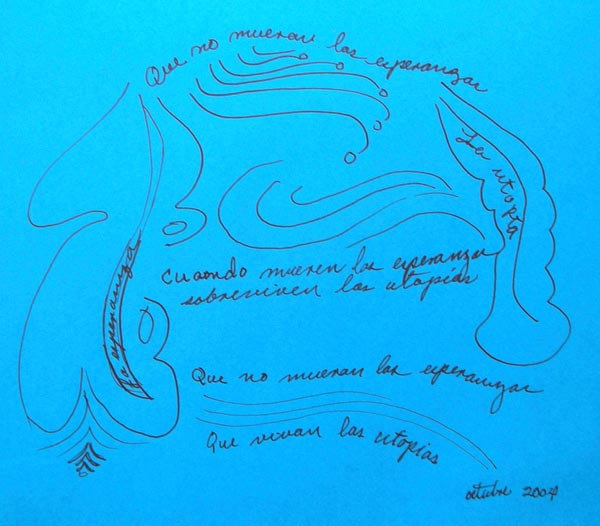 Que no mueran las esperanzas
La utopía
La esperanza
Cuando mueren las esperanzas
sobreviven las utopías
Que no mueran las esperanzas
Que vivan las utopías
octubre 2004